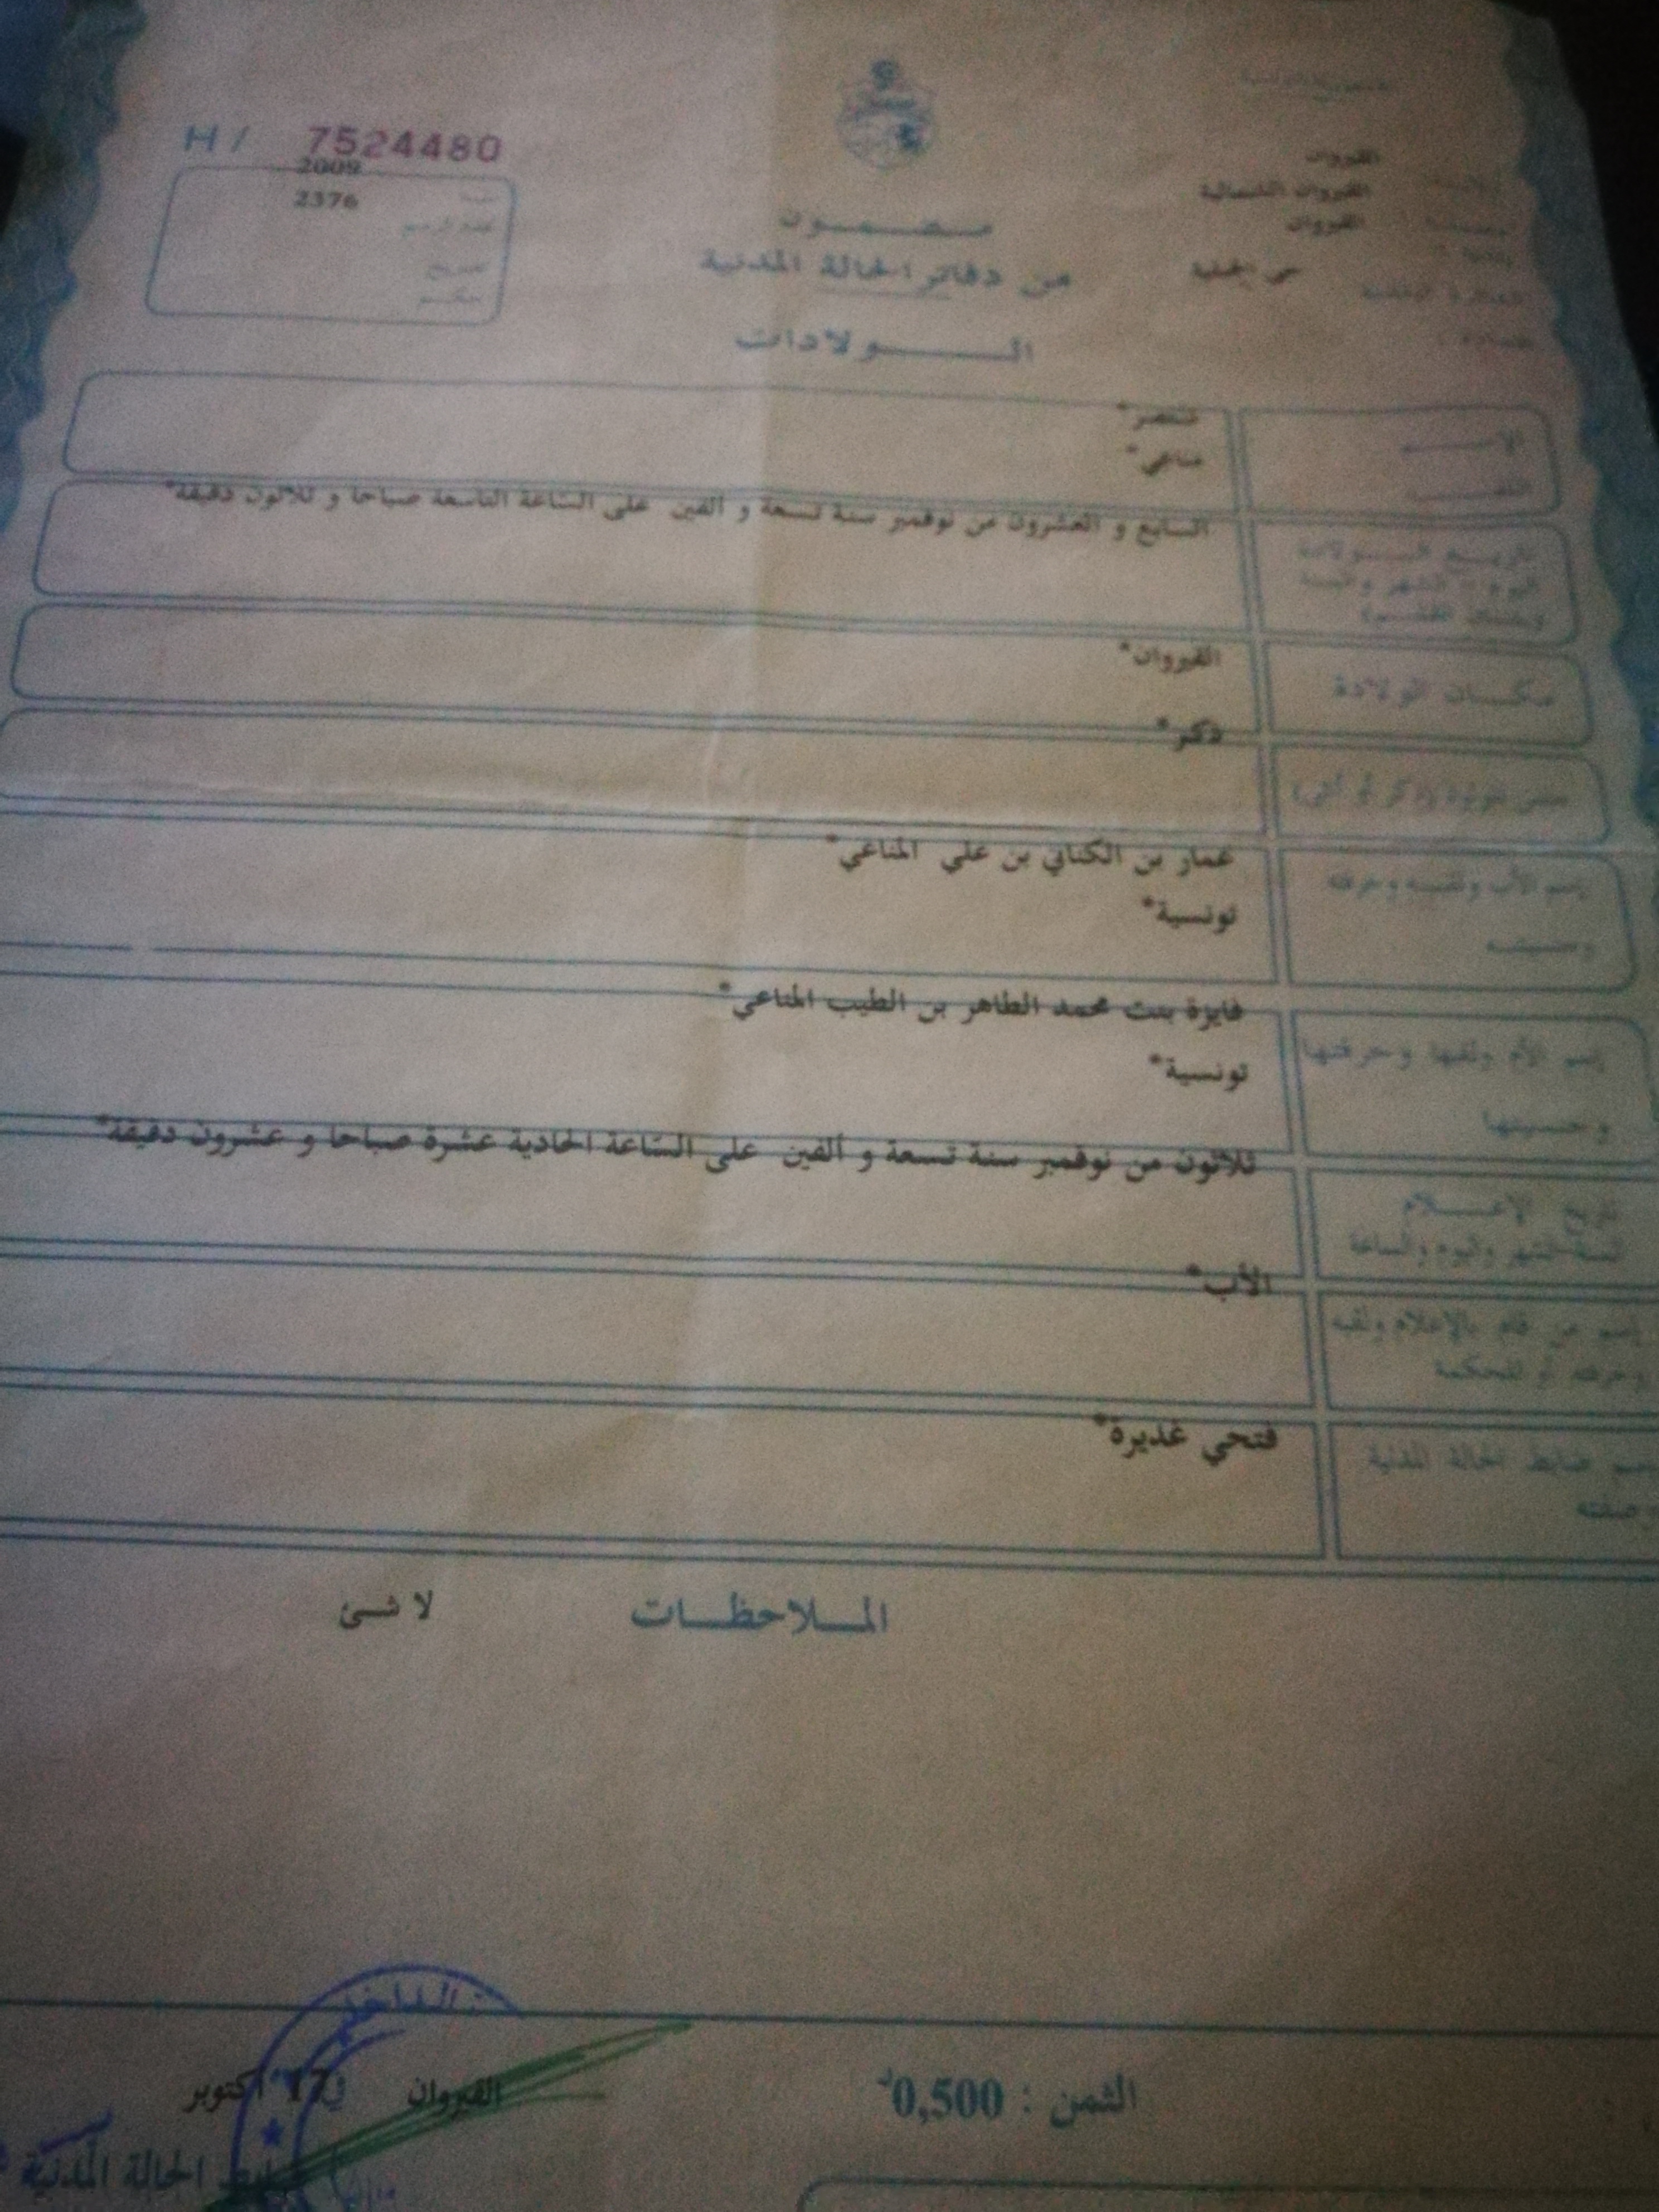 الجمهورية التونسية
H / 7524480
القيروان
2009
القيروان الشمالية
سنة
2376
القيروان
عدد الرسم
مضمون
من دفاتر الحالة المدنية
حي
تصريح
حكم
الولادات
الاسم
مناعي*
اللقب
السابع و العشرون من نوفمبر سنة تسعة و الفين على الساعة التاسعة صباحا و ثلاثون دقيقة*
تاريخ الولادة
اليوم - الشهر والسنة
القيروان*
مكان الولادة
ذكر*
جنس المولود (ذكر أو أنثى)
عمار بن الكتاني بن علي المناعي*
إسم الأب ولقبه وحرفته
تونسية*
وجنسيته
فايزة بنت محمد الطاهر بن الطيب المناعي*
إسم الأم ولقبها وحرفتها
تونسية*
وجنسيتها
ثلاثون من نوفمبر سنة تسعة و ألفين على الساعة الحادية عشرة صباحا و عشرون دقيقة*
تاريخ الإعلام
السنة الشهر واليوم والساعة
الأب*
إسم من قام بالإعلام ولقبه
وحرفته أو المحكمة
فتحي غديرة*
إسم ضابط الحالة المدنية
وصفته
الملاحظات
لا شئ
الداخلية
القيروان
في 17 اكتوبر
الثمن : 0,500د
ضابط الحالة المدنية